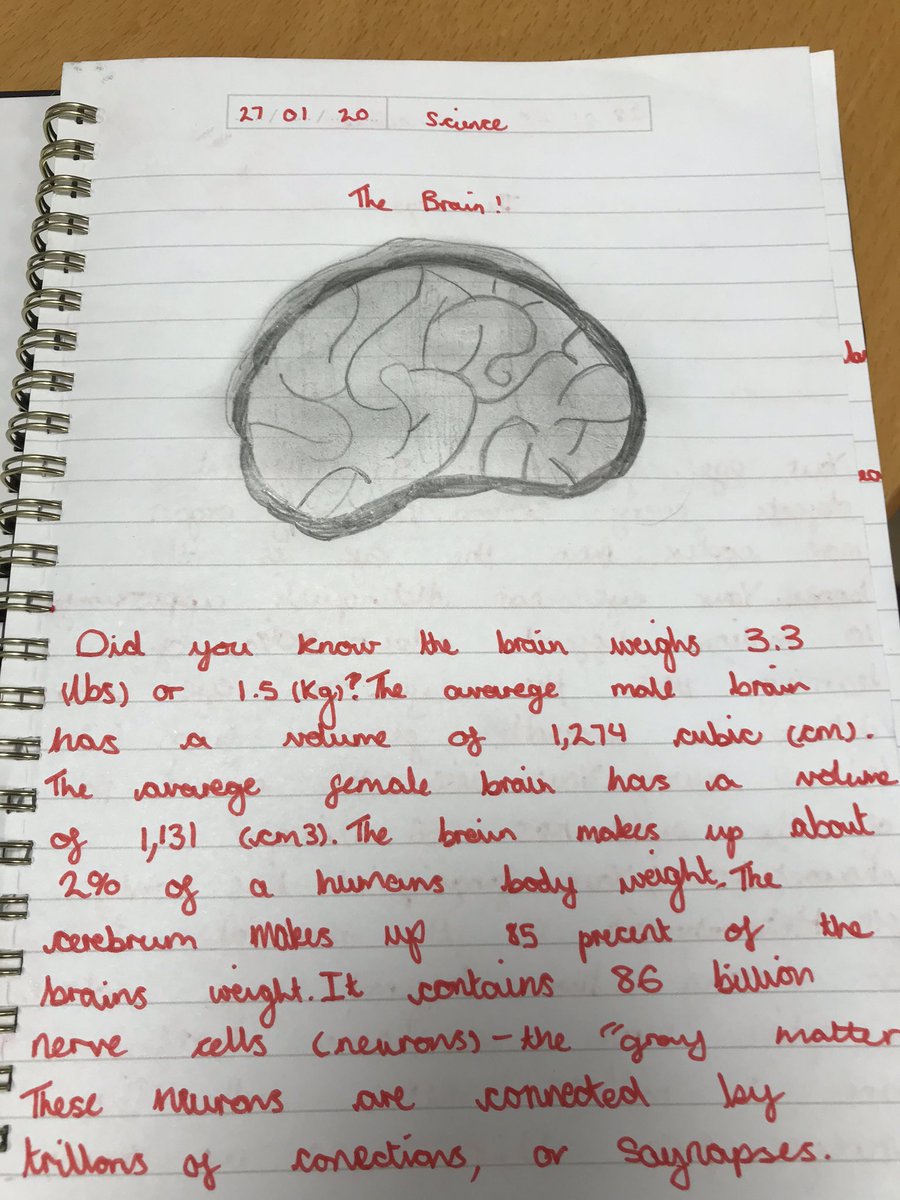 27/01/20 Science
The Brain!
Did you know the brain weighs 3.3
(lbs) or 1.5 (Kg)? The avarege male brain
has a volume of 1,274 cubic (cm).
The avarege female brain has a volume
of 1,131 (cm3). The brain makes up about
2% of a humans body weight. The
cerebrum makes up 85 precent of the
brains weight. It contains 86 billion
nerve cells (neurons) - the "gray matter
These neurons are connected by
trillons of conections, or Saynapses.